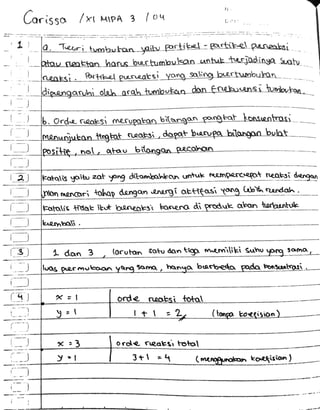 Carissa /XI MIPA 3 / 04
1 a. Teori tumbukan yaitu partikel - partikel pereaksi
atau reaktan harus bertumbukan untuk terjadinya suatu
reaksi. Partikel pereaksi yang saling bertumbukan
dipengaruhi oleh arah tumbukan dan frekuensi tumbukan.
b. Orde reaksi merupakan bilangan pangkat konsentrasi
menunjukan tingkat reaksi, dapat berupa bilangan bulat
positif, nol, atau bilangan pecahan
2 Katalis yaitu zat yang ditambahkan untuk mempercepat reaksi dengan
jalan mencari tahap dengan energi aktifasi yang lebih rendah.
Katalis tidak ikut bereaksi karena di produk akan terbentuk
kembali.
3 1 dan 3, larutan satu dan tiga memiliki suhu yang sama,
luas permukaan yang sama, hanya berbeda pada konsentrasi.
4 x = 1 orde reaksi total
y = 1 1 + 1 = 2 (tanpa koefisien)
x = 3 orde reaksi total
y = 1 3+1 = 4 (menggunakan koefisien)